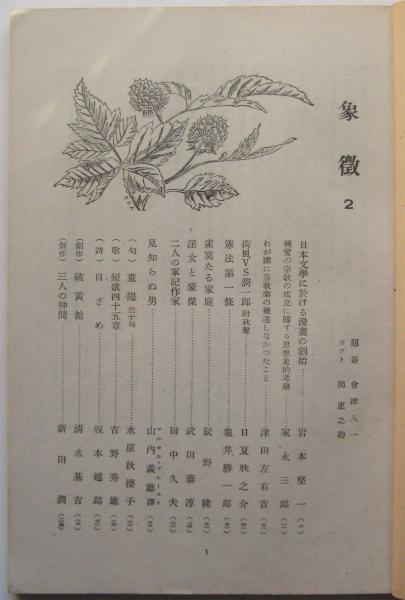 象徴 2
題簽 會津八一
カツト 関重之助
日本文學に於ける漫畫の創始 岩本堅一
親鸞の宗教の成立に關する思想史的考察 家永三郎
わが國に宗教樂の發達しなかつたこと 津田左右吉
荷風VS潤一郎 附秋聲 日夏耿之介
憲法第一條 龜井勝一郎
索寞たる家庭 辰野隆
淫女と豪傑 武田泰淳
二人の軍記作家 田中久夫
見知らぬ男 マルセル・プルースト 山内義雄譯
(句) 重陽 三十句 水原秋櫻子
(歌) 短歌四十五章 吉野秀雄
(詩) 目ざめ 坂本越郎
(創作) 硫黄館 清水基吉
(創作) 三人の仲間 新田潤
1